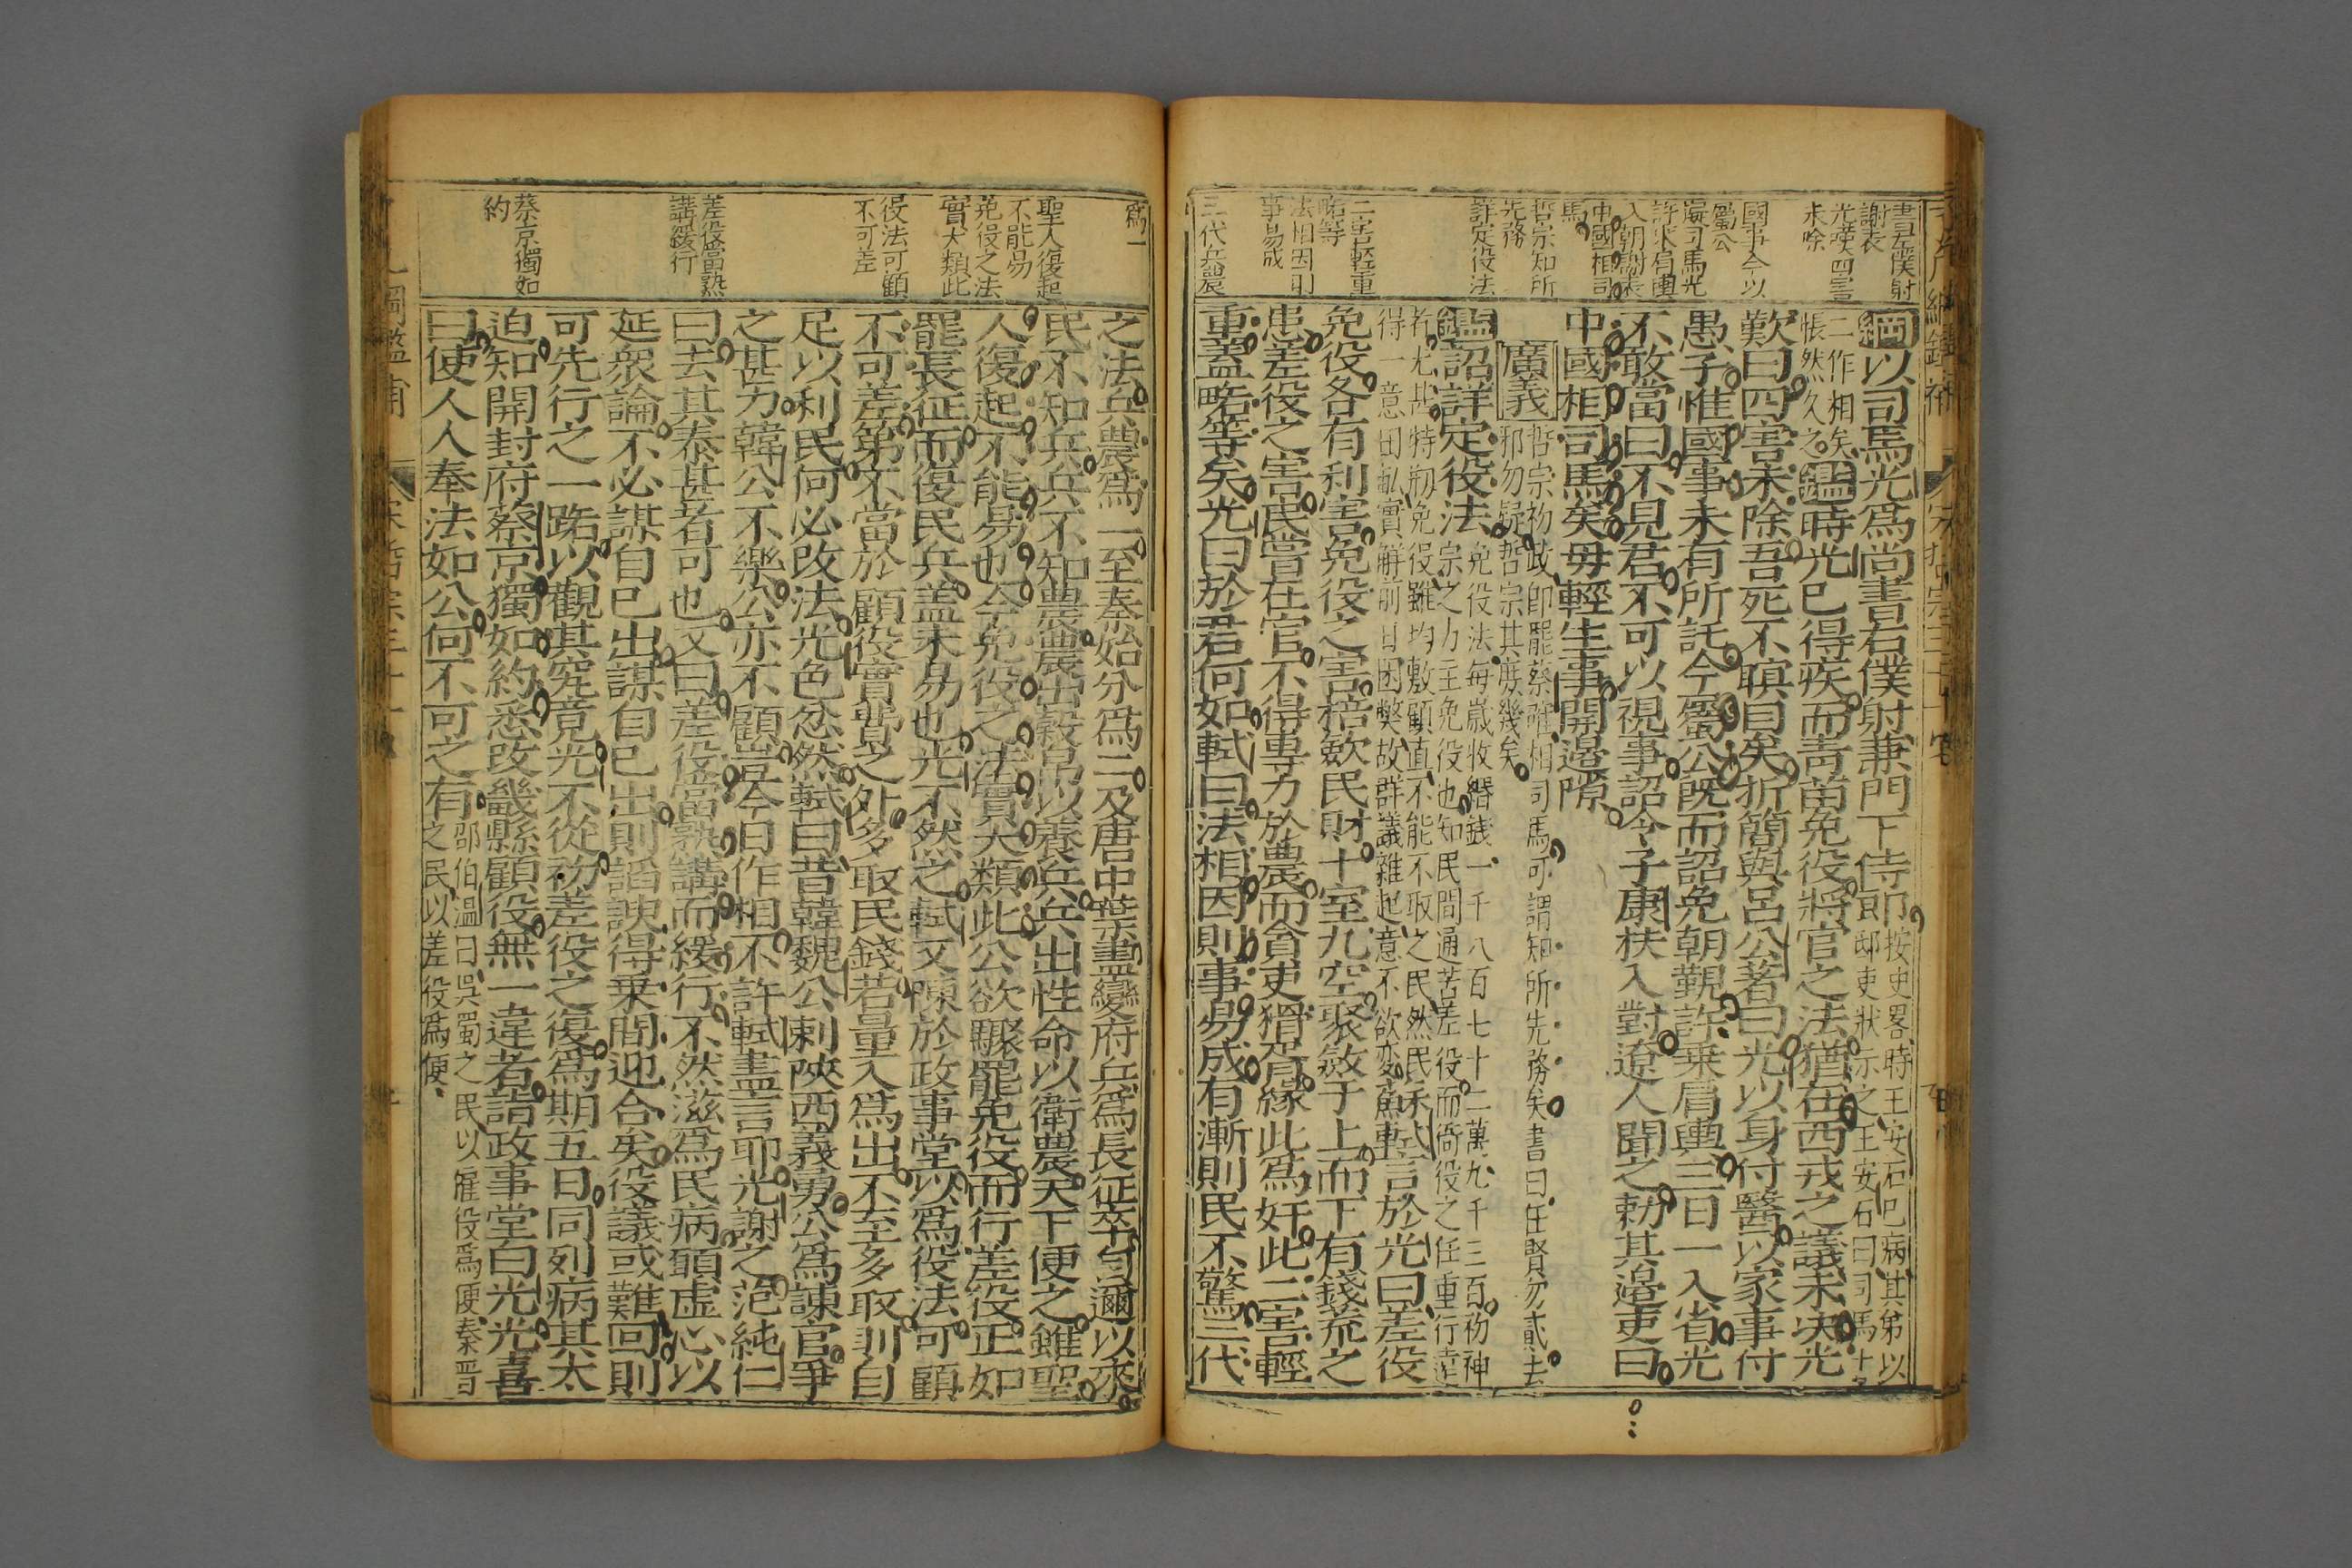 書左僕射
謝表
光嘆四害
未除
國事今以
屬公
遼司馬光
許乘肩輿
入朝謝表
中國相司
馬
哲宗知所
先務
詳定役法
二害輕重
略等
法相因則
事易成
三代兵農
綱以司馬光爲尚書右僕射兼門下侍郎
按史畧時王安石已病其弟以
邸吏狀示之王安石曰司馬十
二作相矣
悵然久之
鑑時光已得疾而青苗免役將官之法猶在西戎之議未決光
歎曰四害未除吾死不瞑目矣折簡與呂公著曰光以身付醫以家事付
愚子惟國事未有所託今屬公既而詔免朝覲許乗肩輿三日一入省光
不敢當曰不見君不可以視事詔令子康扶入對遼人聞之勅其邊吏曰
中國相司馬矣毋輕生事開邊隙
廣義
哲宗初政即罷蔡確相司馬可謂知所先務矣書曰任賢勿貳去
邪勿疑哲宗其庶幾矣
鑑詔詳定役法
免役法毎歳收緡錢一千八百七十二萬九千三百初神
宗之力主免役也知民間通苦差役而衙役之任重行遠
者尤甚特剏免役雖均敷顧直不能不取之民然民
得一意田畝實解前日困獘故群議雜起意不欲変
蘇軾言於光曰差役
免役各有利害免役之害掊歛民財十室九空聚斂于上而下有錢荒之
患差役之害民嘗在官不得專力於農而貪吏猾胥緣此爲奸此二害輕
重蓋略等矣光曰於君何如軾曰法相因則事易成有漸則民不驚三代
爲一
聖人復起
不能易
免役之法
實大類此
役法可顧
不可差
差役當熟
講緩行
蔡京獨如
約
之法兵農爲一至秦始分爲二及唐中葉盡變府兵爲長征卒自爾以來
民不知兵兵不知農農出穀帛以養兵兵出性命以衛農天下便之雖聖
人復起不能易也今免役之法實大類此公欲驟罷免役而行差役正如
罷長征而復民兵盖未易也光不然之軾又陳於政事堂以爲役法可顧
不可差第不當於顧役實費之外多取民錢若量入爲出不至多取則自
足以利民何必改法光色忿然軾曰昔韓魏公刺陝西義勇公爲諫官爭
之甚力韓公不樂公亦不顧豈今日作相不許軾盡言耶光謝之范純仁
曰去其泰甚者可也又曰差役當熟講而緩行不然滋爲民病願虛心以
延衆論不必謀自已出謀自已出則諂諛得乗間迎合矣役議或難回則
可先行之一路以觀其究竟光不從初差役之復爲期五日同列病其太
迫知開封府蔡京獨如約悉改畿縣顧役無一違者詣政事堂白光光喜
曰使人人奉法如公何不可之有
邵伯温曰吳蜀之民以雇役爲便秦晋
之民以差役爲便